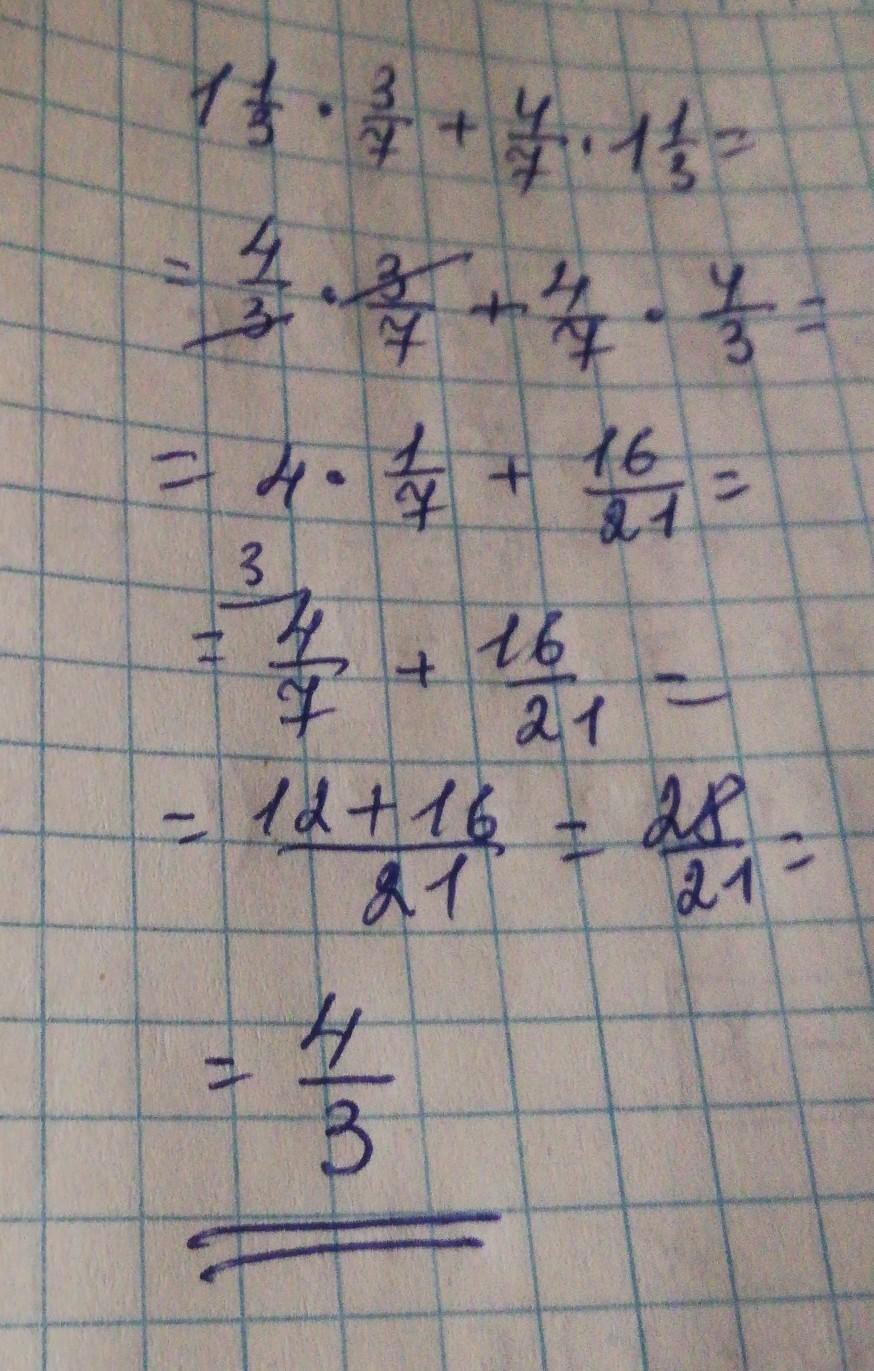 1 1/3 · 3/7 + 4/7 · 1 1/3 =
= 4/3 · 3/7 + 4/7 · 4/3 =
= 4 · 1/7 + 16/21 =
3
= 4/7 + 16/21 =
= 12+16/21 = 28/21 =
= 4/3